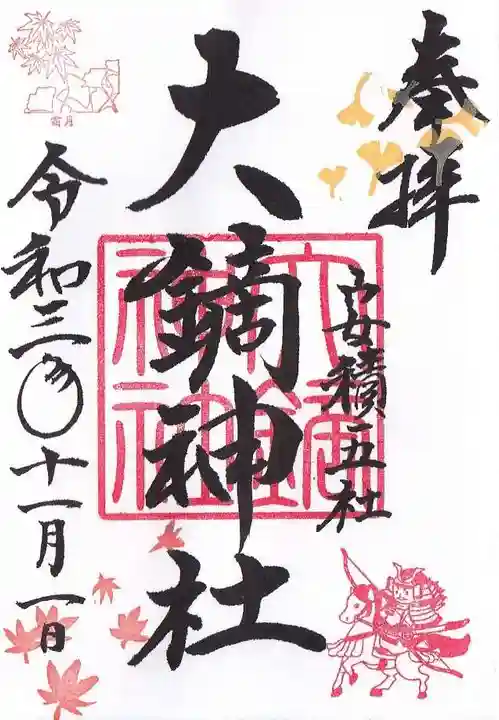 奉拝
安積三社
大鏑神社
令和三年十一月一日
霜月